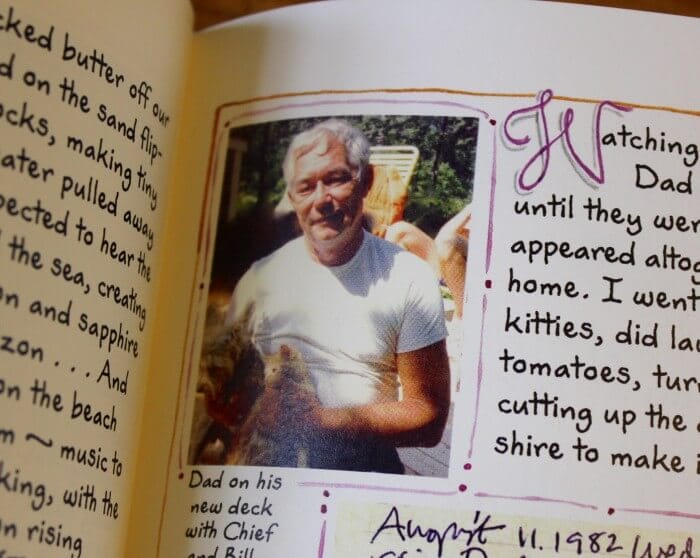 cked butter off our
d on the sand flip-
ocks, making tiny
ater pulled away
pected to hear the
the sea, creating
on and sapphire
zon . . . And
on the beach
m ~ music to
king, with the
n rising
Dad on his
new deck
with Chief
and Bill
Watching
Dad
until they wer
appeared altog
home. I went
kitties, did lau
tomatoes, tur
cutting up the
shire to make i
August 11, 1982